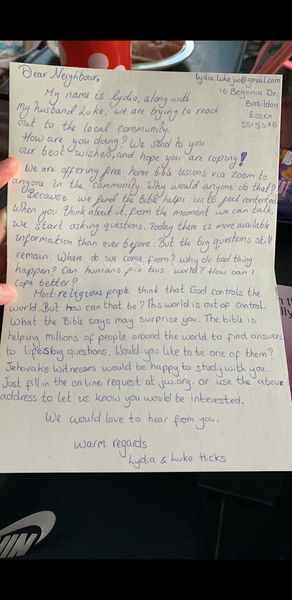 Dear Neighbour,
lydia.lukejw@gmail.com
16 Begonia Dr.
Basildon
Essex
SS15
My name is Lydia, along with
my husband Luke, we are trying to reach
out to the local community.
How are you doing? We send to you
our best wishes, and hope you are coping!
We are offering free home bible lessons via zoom to
anyone in the community. Why would anyone do that?
Because we find the bible helps us to feel contented
When you think about it, from the moment we can talk,
we start asking questions. Today there is more available
information than ever before. But the big questions still
remain. Where do we come from? Why do bad thing
happen? Can humans fix this world? How can I
cope better?
Most religious people think that God controls the
world. But how can that be? This world is out of control.
What the Bible says may surprise you. The bible is
helping millions of people around the world to find answers
to lifes big questions. Would you like to be one of them?
Jehovah's Witnesses would be happy to study with you.
Just fill in the online request at jw.org. or use the above
address to let us know you would be interested.
We would love to hear from you.
Warm regards
Lydia & Luke Hicks